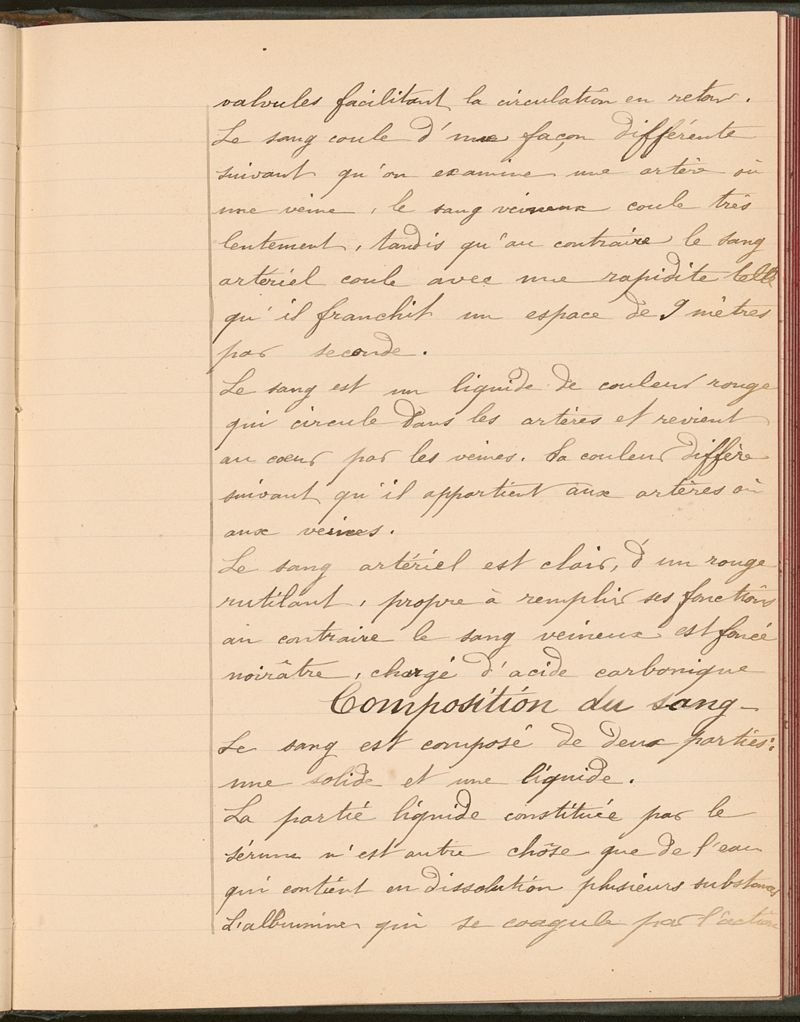 valvules facilitant la circulation en retour.
Le sang coule d'une façon différente
suivant qu'on examine une artère ou
une veine, le sang veineux coule très
lentement, tandis qu'au contraire le sang
artériel coule avec une rapidité telle
qu'il franchit un espace de 9 mètres
par seconde.
Le sang est un liquide de couleur rouge
qui circule dans les artères et revient
au cœur par les veines. Sa couleur diffère
suivant qu'il appartient aux artères ou
aux veines.
Le sang artériel est clair, d'un rouge
rutilant, propre à remplir ses fonctions
au contraire le sang veineux est foncé
noirâtre, chargé d'acide carbonique
Composition du sang-
Le sang est composé de deux parties:
une solide et une liquide.
La partie liquide constituée par le
sérum n'est autre chôse que de l'eau
qui contient en dissolution plusieurs substances
L'albumine qui se coagule par l'action